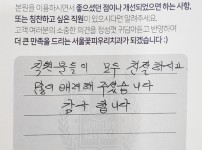 본원을 이용하시면서 좋으셨던 점이나 개선되었으면 하는 사항,
또는 칭찬하고 싶은 직원이 있으시다면 알려주세요.
고객 여러분의 소중한 의견을 정성껏 귀담아듣고 반영하며
더 큰 만족을 드리는 서울꽃피우리치과가 되겠습니다 :)
직원분들이 모두 친절하시고
많이 배려해 주셨습니다
감사 합니다